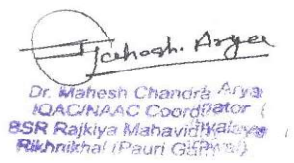 Mahesh. Arya
Dr. Mahesh Chandra Arya
IQAC/NAAC Coordinator (
BSR Rajkiya Mahavidyalaya
Rikhnikhal (Pauri Garhwal)